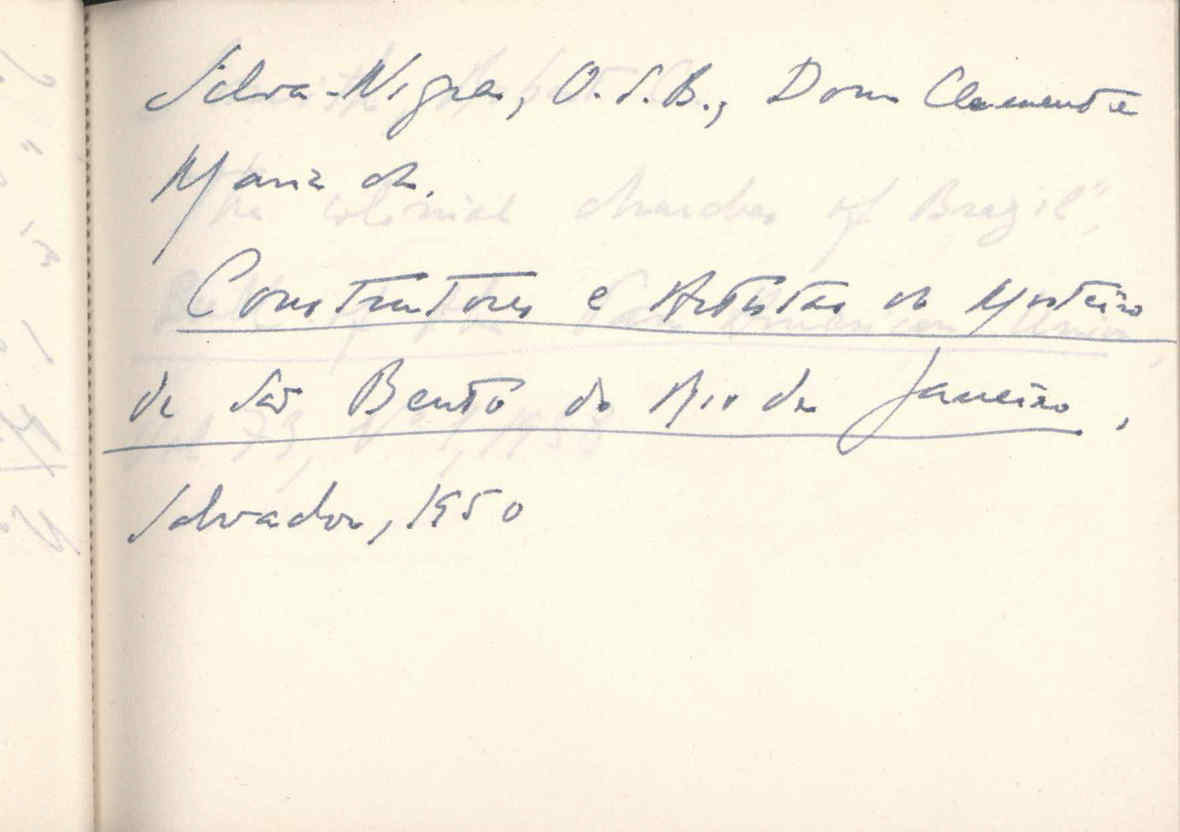 Silva-Nigra, O.S.B., Dom Clemente
Maria da.
Construtores e Artistas do Mosteiro
de São Bento do Rio de Janeiro,
Salvador, 1950